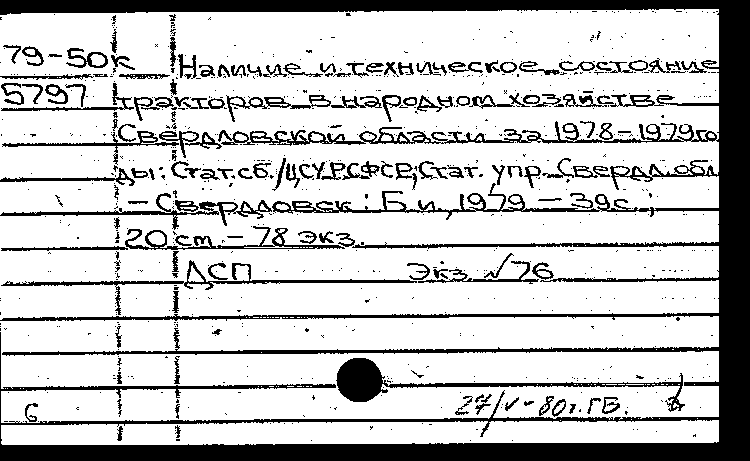 79-50к Наличие и техническое состояние
5797 тракторов в народном хозяйстве
Свердловской области за 1978-1979го
ды: Стат.сб./ЦСУ РСФСР, Стат. упр. Свердл. обл
. – Свердловск : Б.и., 1979 – 39с. ;
20 см. – 78 экз.
ДСП Экз √76
6 27/V-80г. ГБ.